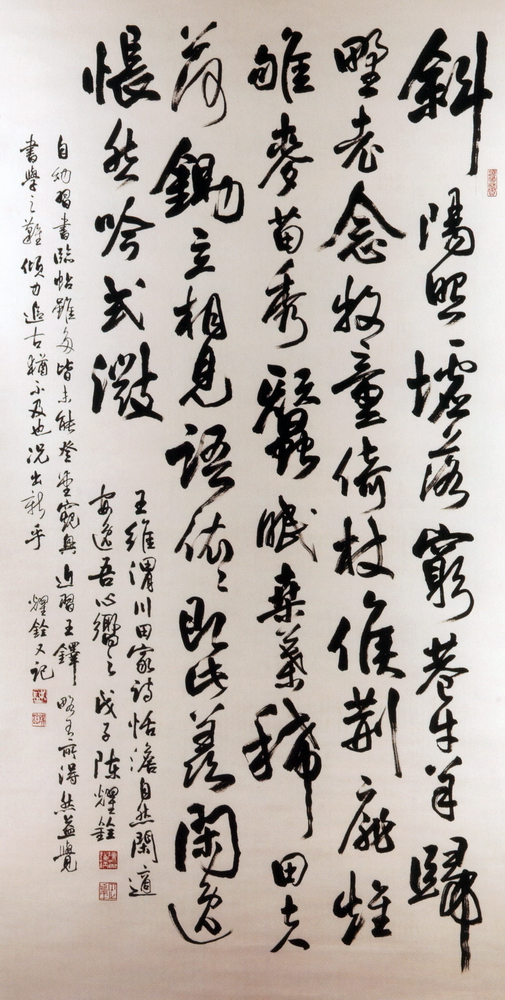 斜陽照墟落窮巷牛羊歸
野老念牧童倚杖候荊扉雉
雊麥苗秀蠶眠桑葉稀田夫
荷鋤立相見語依〻即此羨閑逸
悵然吟式微
王維渭川田家詩恬澹自然閑適
安逸吾心嚮之戊子陳耀銓
自幼習書臨帖雖多皆未能登堂窺奧近習王鐸略有所得然益覺
書學之難傾力追古猶不及也況出新乎耀銓又記